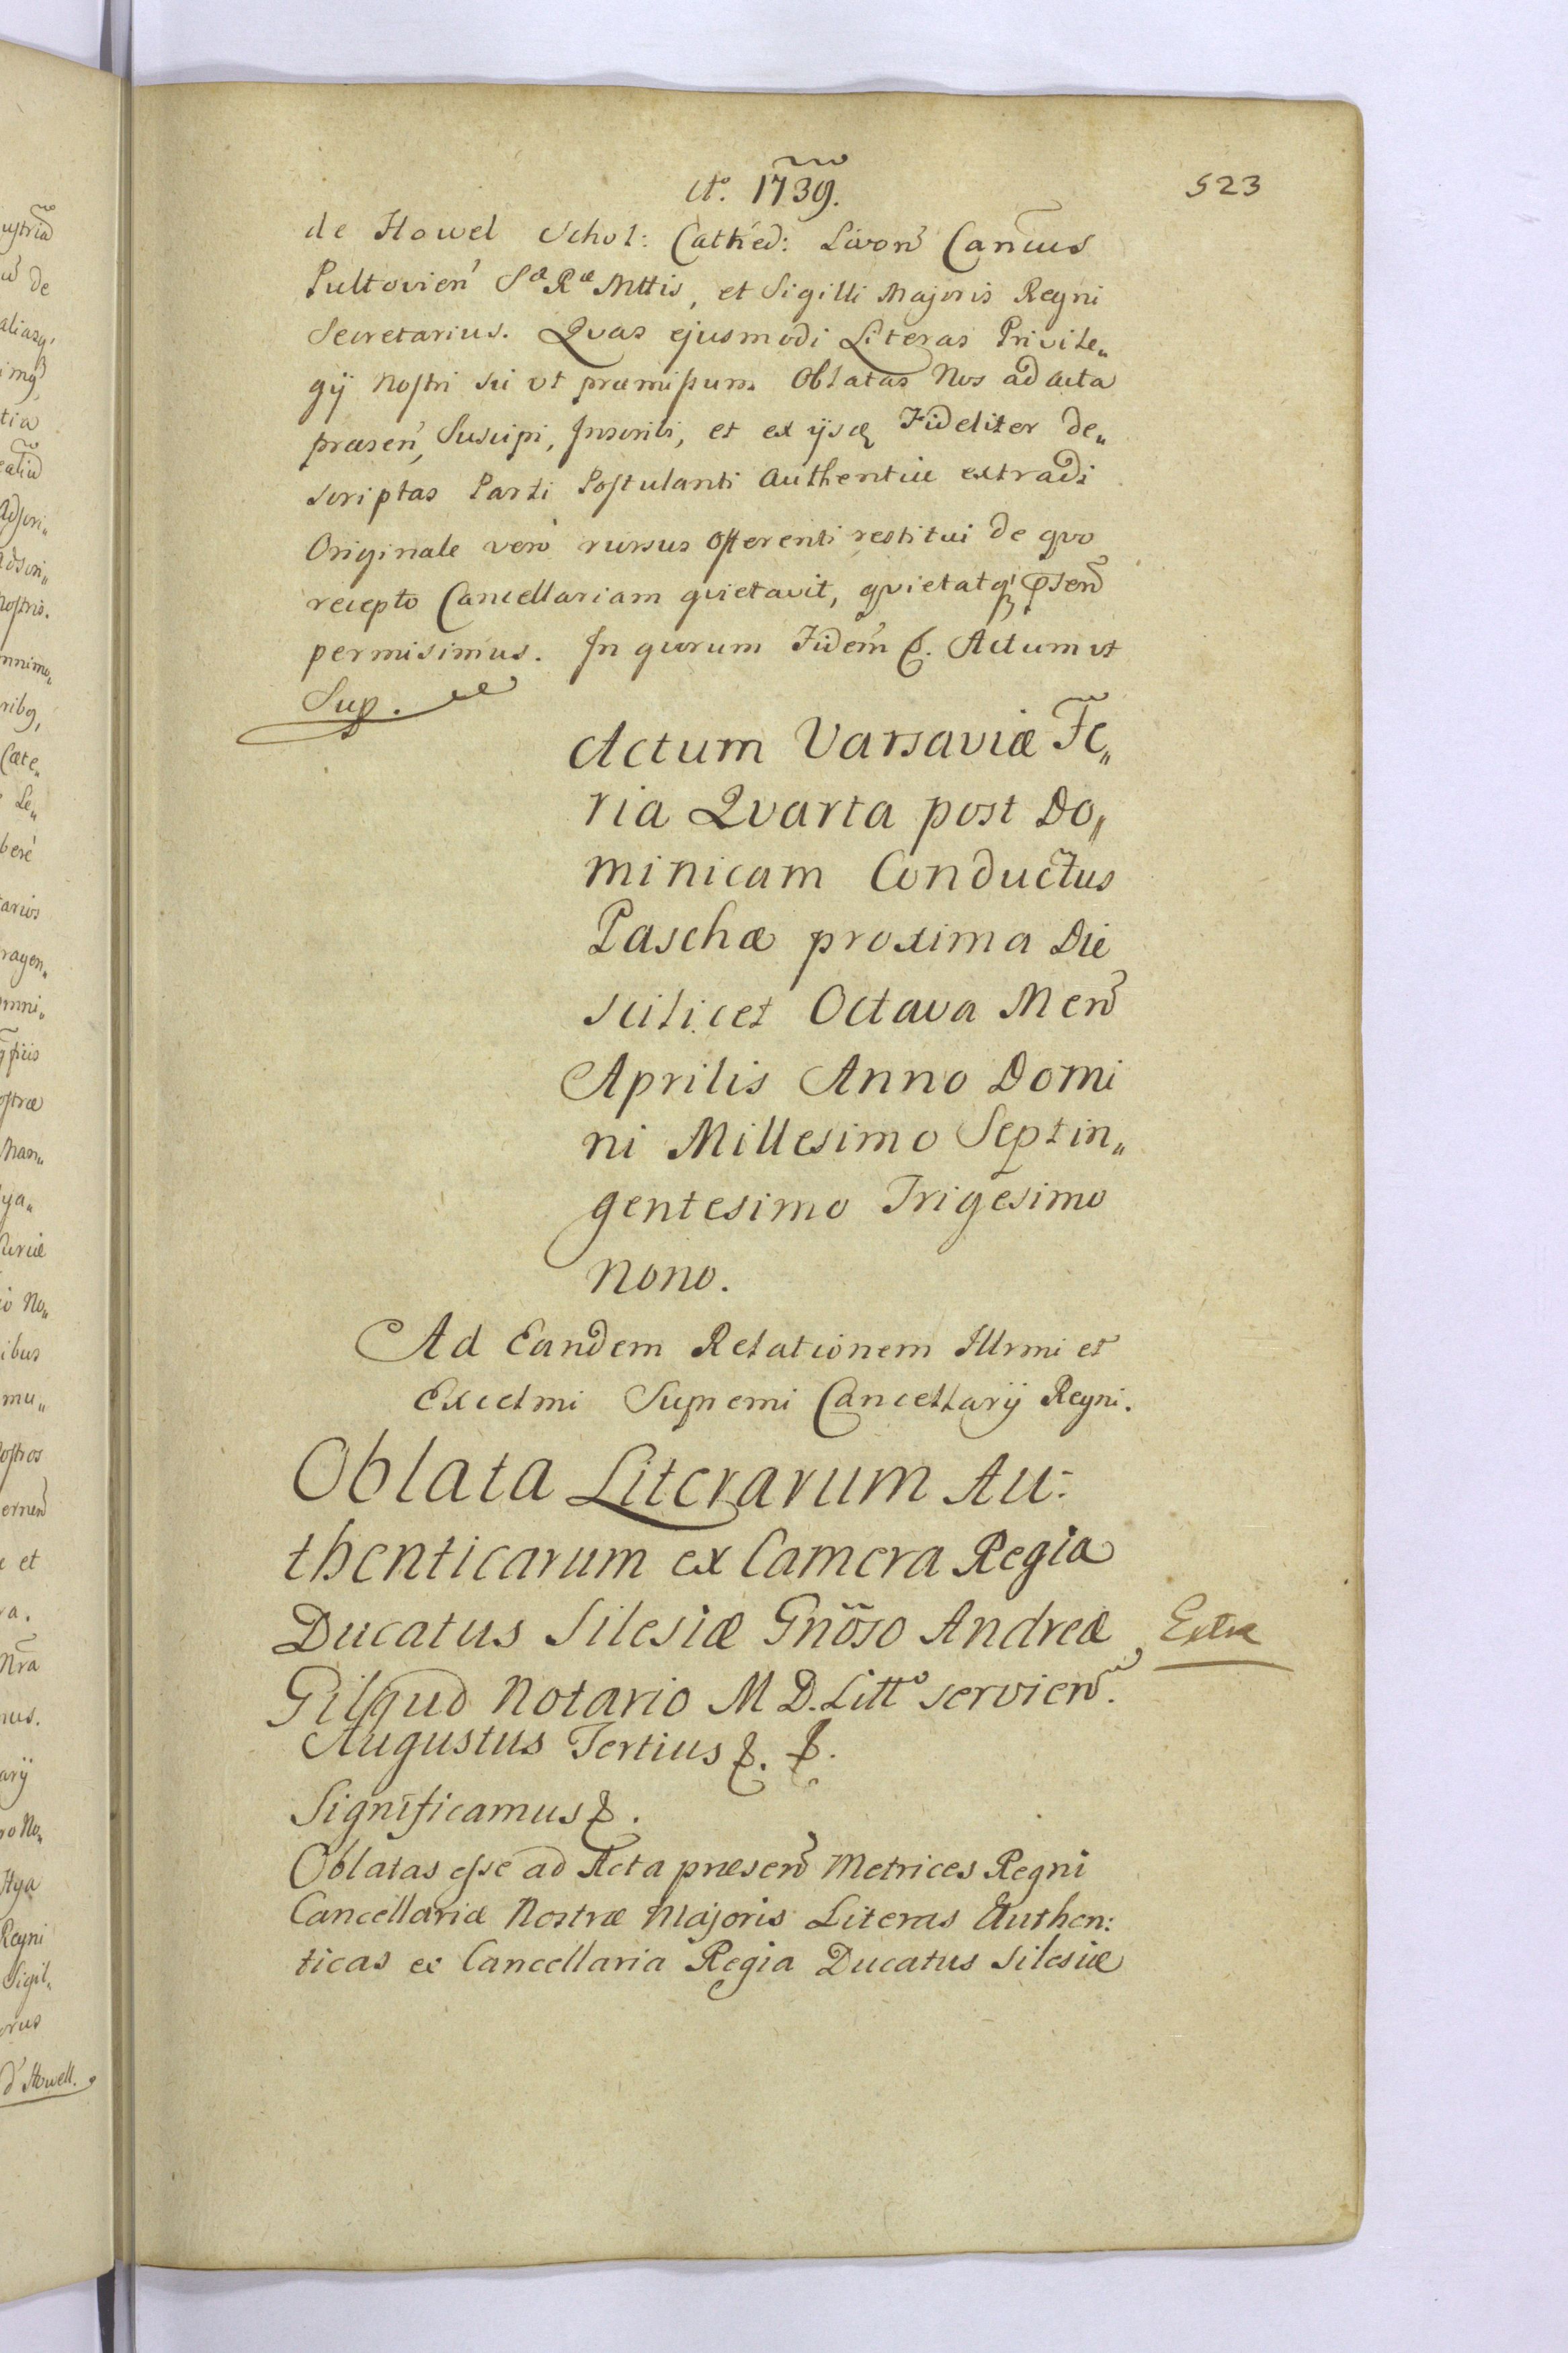 Ao. 1739.
523
de Howel Schol: Cathed: Livon Cancus
Pultovien Sæ Ræ Mttis, et Sigilli Majoris Regni
Secretarius. Qvas ejusmodi Literas Privile„
gij Nostri sic ut præmissum Oblatas Nos ad Acta
præsen, Suscipi, Inscribi, et ex ijsq Fideliter de„
scriptas Parti Postulanti Authentice extradi
Originale vero rursus Offerenti restitui de qvo
recepto Cancellariam qvietavit, qvietatq
permisimus. In qvorum Fidem &. Actum ut
Sup.
Actum Varsaviæ Fe„
ria Qvarta post Do„
minicam Conductus
Paschæ proxima Die
scilicet Octava Men
Aprilis Anno Domi
ni Millesimo Septin„
gentesimo Trigesimo
nono.
Ad Eandem Relationem Illrmi et
Excelmi Supremi Cancellarij Regni.
Oblata Literarum Au:
thenticarum ex Camera Regia
Ducatus Silesiæ Gnoso Andreæ
Extra
Notario M D. Litto servien.
Augustus Tertius &. &.
Significamus &.
Oblatas esse ad Acta præsen Metrices Regni
Cancellariæ Nostræ Majoris Literas Authen:
ticas ex Cancellaria Regia Ducatus Silesiæ